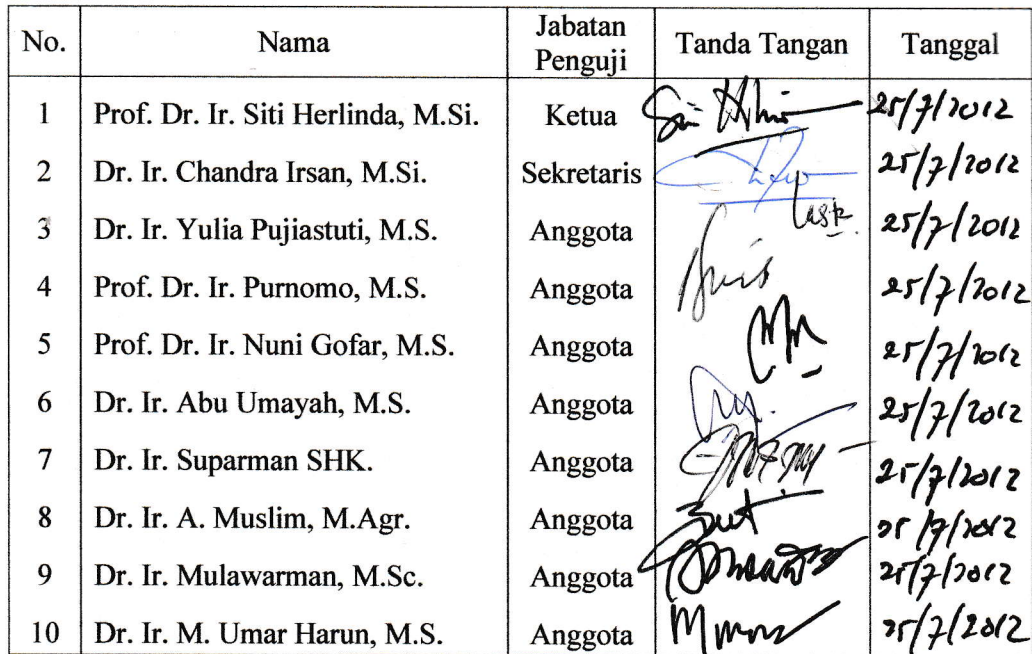 No. Nama Jabatan Penguji Tanda Tangan Tanggal
1 Prof. Dr. Ir. Siti Herlinda, M.Si. Ketua 25/7/2012
2 Dr. Ir. Chandra Irsan, M.Si. Sekretaris 25/7/2012
3 Dr. Ir. Yulia Pujiastuti, M.S. Anggota 25/7/2012
4 Prof. Dr. Ir. Purnomo, M.S. Anggota 25/7/2012
5 Prof. Dr. Ir. Nuni Gofar, M.S. Anggota 25/7/2012
6 Dr. Ir. Abu Umayah, M.S. Anggota 25/7/2012
7 Dr. Ir. Suparman SHK. Anggota 25/7/2012
8 Dr. Ir. A. Muslim, M.Agr. Anggota 25/7/2012
9 Dr. Ir. Mulawarman, M.Sc. Anggota 25/7/2012
10 Dr. Ir. M. Umar Harun, M.S. Anggota 25/7/2012